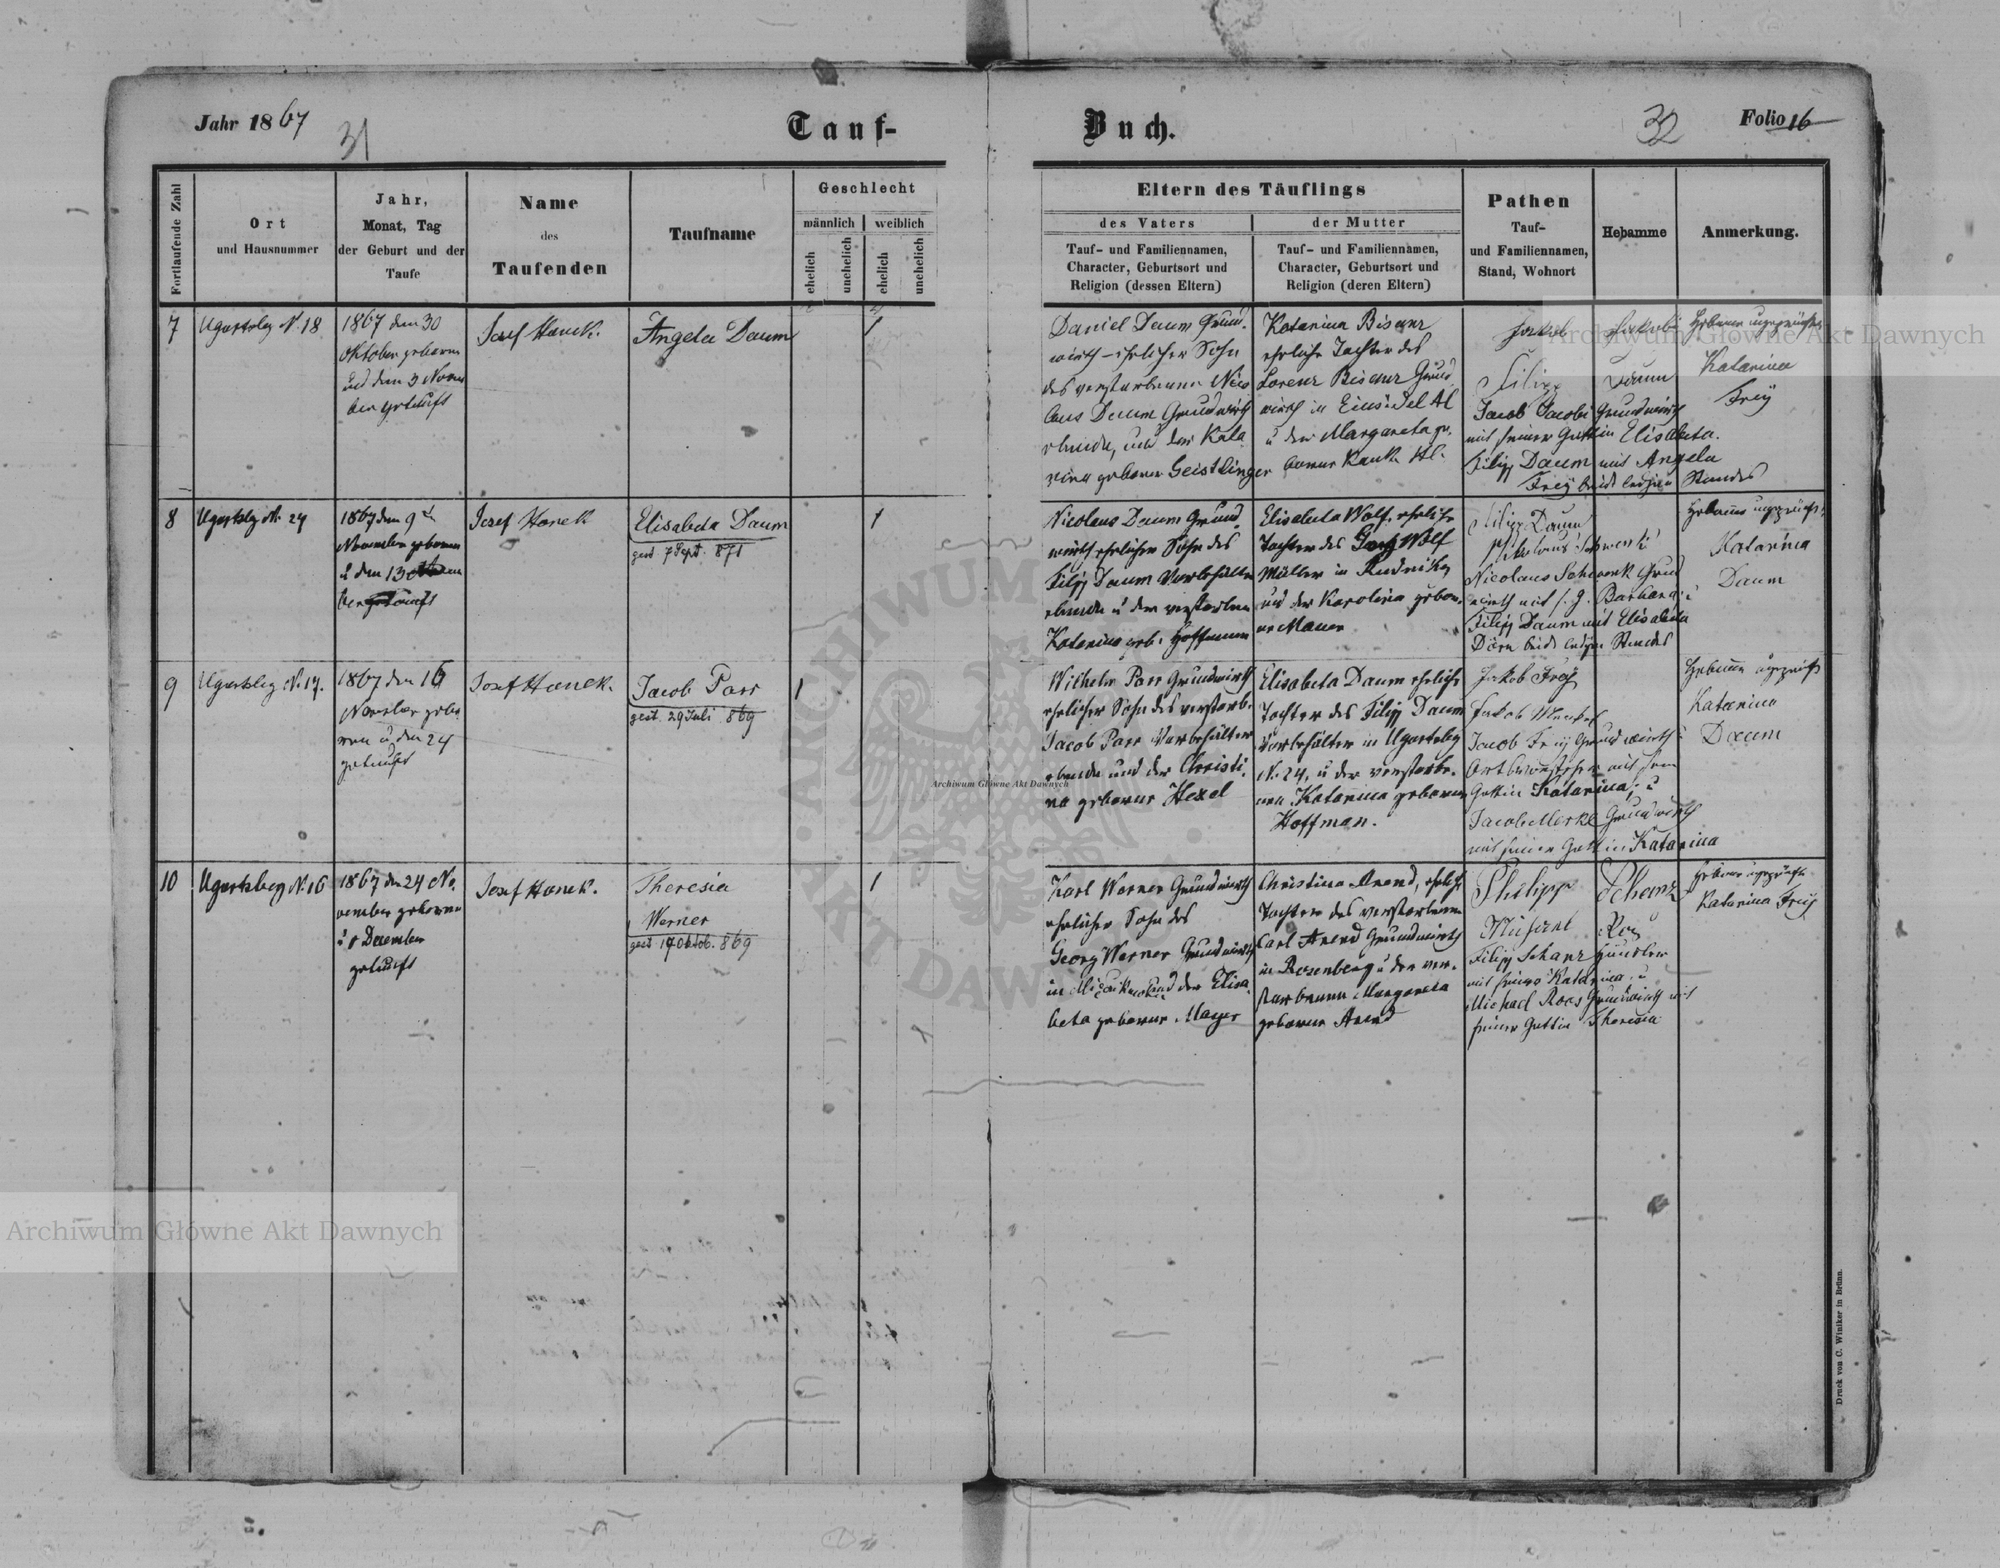 Jahr 1867
31
Tauf-
Buch.
32
Folio 16
Fortlaufende Zahl
Ort
und Hausnummer
Jahr,
Monat, Tag
der Geburt und der
Taufe
Name
des
Taufenden
Taufname
Geschlecht
männlich
weiblich
ehelich
unehelich
ehelich
unehelich
Eltern des Täuflings
des Vaters
der Mutter
Tauf- und Familiennamen,
Character, Geburtsort und
Religion (dessen Eltern)
Tauf- und Familiennamen,
Character, Geburtsort und
Religion (deren Eltern)
Pathen
Tauf-
und Familiennamen,
Stand, Wohnort
Hebamme
Anmerkung.
7
Ugartsbg N. 18
1867 den 30
Oktober geboren
und den 3 Novem
ber getauft
Josef Hanek.
Angela Daum
1
Daniel Daum Grund
wirth ehelicher Sohn
des verstorbenen Nico
laus Daum Grundwirth
und der Kata
rina geborene Geistlinger
Katarina Bisanz
eheliche Tochter des
Lorenz Bisanz Grund
wirth in Einsidel
u der Margareta ge
borene Kauk
Jakob Jakobi
Filipp Daum
Jacob Jacobi Grundwirth
mit seiner Gattin Elisabeta.
Filipp Daum mit Angela
Frey beide ledigen Standes
Hebamme ungeprüfte
Katarina
Frey
8
Ugartsbg N. 24
1867 den 9
November geboren
u den 13
ber getauft
Josef Hanek
Elisabeta Daum
gest 7 Sept. 871
1
Nicolaus Daum Grund
wirth ehelicher Sohn des
Filipp Daum Vorbehälter
u der verstorbenen
Katarina geb. Hoffmann
Elisabeta Wolf eheliche
Tochter des Wolf
Müller in
und der Karolina gebor
ne Mauer
Filipp Daum
Nikolaus Schwenk
Nicolaus Schwenk Grund
wirth mit s. g. Barbara u
Filipp Daum mit Elisabeta
beide ledigen Standes
Hebamme ungeprüft
Katarina
Daum
9
Ugartsbg N. 17.
1867 den 16
November gebo
ren u den 24
getauft
Josef Hanek.
Jacob Parr
gest. 29 Juli 869
1
Wilhelm Parr Grundwirth
ehelicher Sohn des verstorb.
Jacob Parr Vorbehälter
und der Christi
na geborene Hexel
Elisabeta Daum eheliche
Tochter des Filipp Daum
Vorbehälter in Ugartsbeg
N. 24, u der verstorbe
nen Katarina geborene
Hoffman.
Jakob Frey
Jakob Merkel
Jacob Frey Grundwirth u
Gattin Katarina, u
Jacob Merkel Grundwirth
mit seiner Gattin Katarina
Hebamme ungeprüft
Katarina
Daum
10
Ugartsbeg N. 16
1867 den 24 No
vember geboren
u 1 Dezember
getauft
Josef Hanek.
Theresia
Werner
gest 17 Oktob. 869
1
Karl Werner Grundwirth
ehelicher Sohn des
Georg Werner Grundwirth
in und der Elisa
beta geborene Mayer
Christina Arend, eheliche
Tochter des verstorbenen
Carl Arend Grundwirth
in Rosenberg u der ver
storbenen Margareta
geborene Arend
Philipp Schanz
Filipp Schanz
Michael Roos Grundwirth mit
seiner Gattin Theresia
Hebamme ungeprüfte
Katarina Frey
Druck von C. Winiker in Brünn.
Archiwum Główne Akt Dawnych
Archiwum Główne Akt Dawnych
Archiwum Główne Akt Dawnych
ARCHIWUM
AKT DAWNYCH